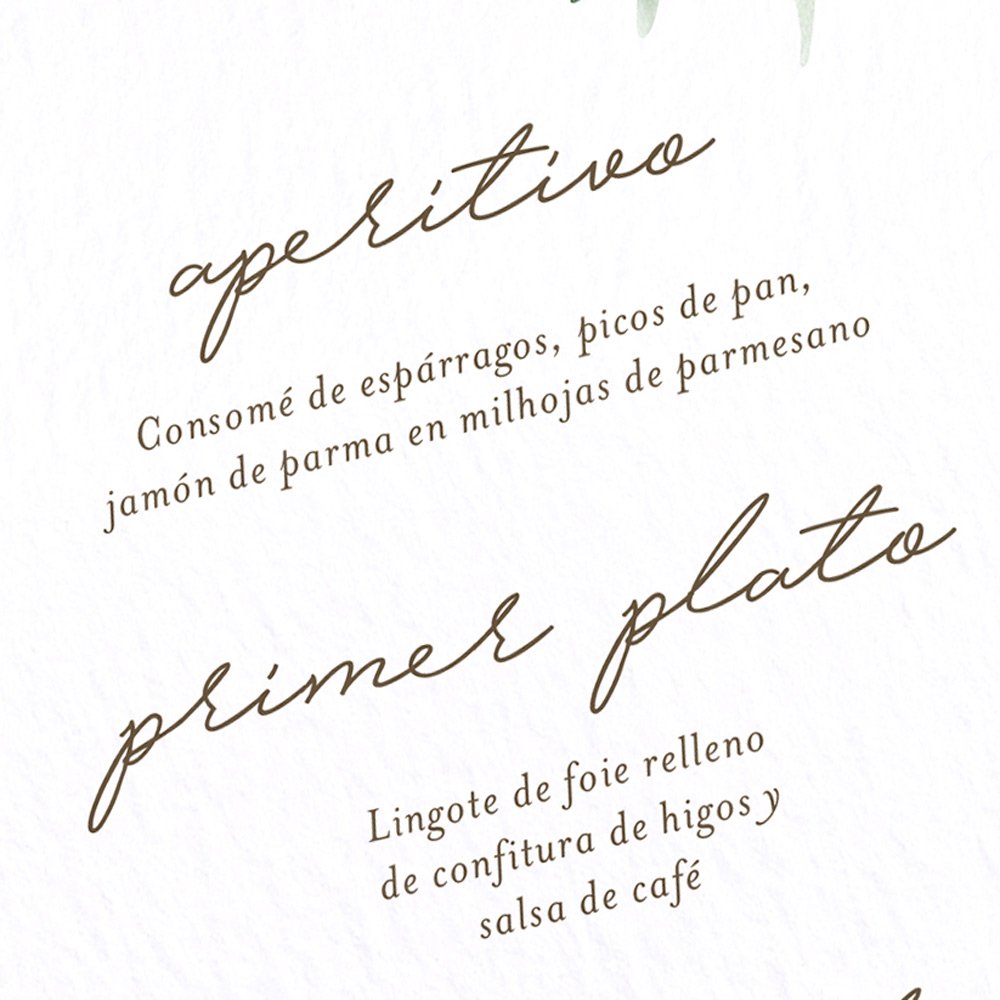 aperitivo
Consomé de espárragos, picos de pan,
jamón de parma en milhojas de parmesano
primer plato
Lingote de foie relleno
de confitura de higos y
salsa de café